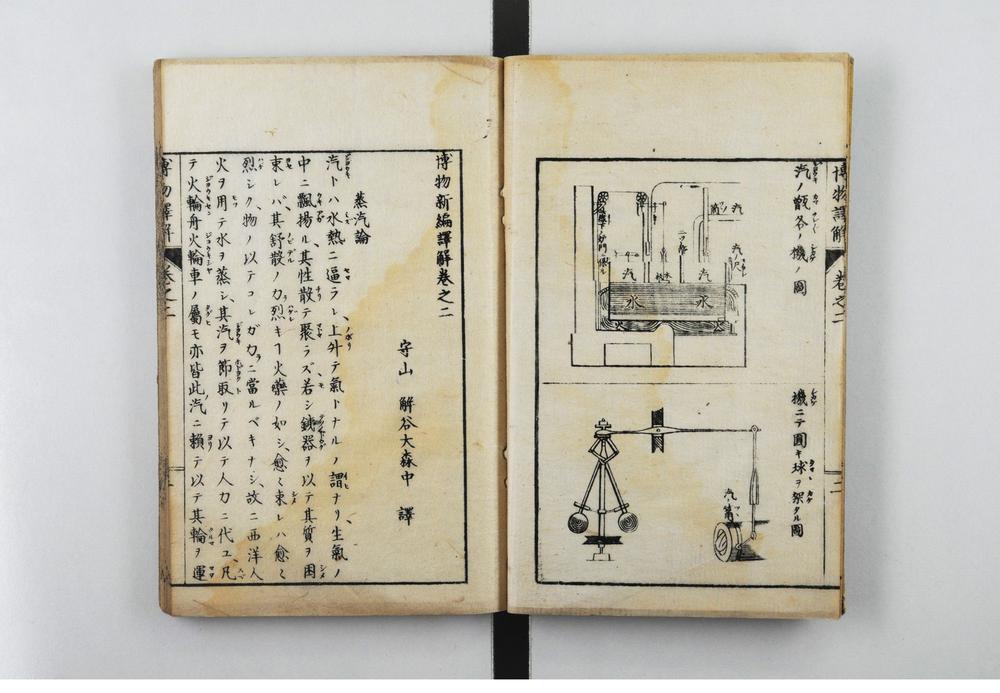 博物譯解
卷之二
汽ノ甑谷ノ機ノ圖
汽
汽
汽
水
水
火
火
機ニテ圓キ球ヲ架タル圖
汽ノ筩
博物新編譯解卷之二
守山 解谷大森中 譯
蒸汽論
汽トハ水熱ニ逼ラレ、上升テ氣トナルノ謂ナリ、生氣ノ
中ニ飄揚ル、其性散テ聚ラズ若シ鐵器ヲ以テ其質ヲ困
束レバ、其舒散ノ力烈キヿ火藥ノ如シ、愈〻束レハ愈〻
烈シク、物ノ以テコレガ力ニ當ルベキナシ、故ニ西洋人
火ヲ用テ水ヲ蒸シ、其汽ヲ節取リテ以テ人力ニ代ユ、凡
テ火輪舟火輪車ノ屬モ亦皆此汽ニ賴テ以テ其輪ヲ運
博物譯解
卷之二